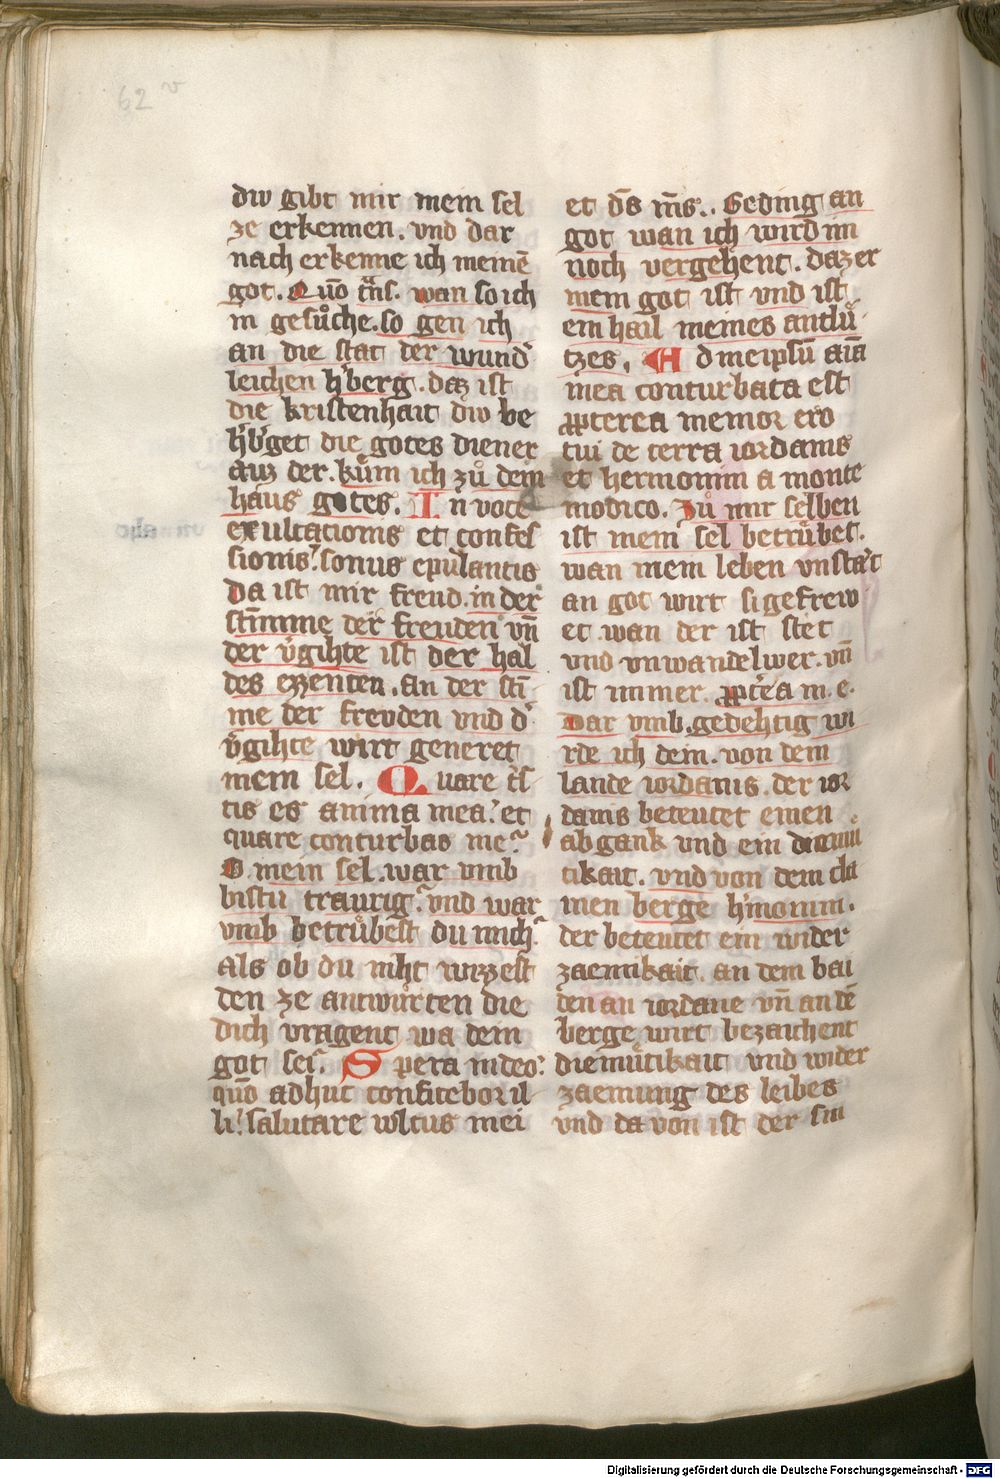 62 v
diw gibt mir mein sel
ze erkennen. vnd dar
nach erkenne ich meinē
got. Quō tͣns. wan so ich
in gesůche. so gen ich
an die stat der wund̾
leichen h̾berg. daz ist
die kristenhait diw be
h̾b̾get die gotes diener
auz der. kům ich zů dem
haus gotes. In voce
exultacionis et confes
sionis. sonus epulantis
Da ist mir freud. in der
stimme der freuden vn̄
der v̾gihte ist der hal
des ezzenten. An der sti
me der freuden vnd d̾
v̾gihte wirt generet
mein sel. Quare t̾s
tis es anima mea. et
quare conturbas me.
O mein sel. war vmb
bistu traurig. vnd war
vmb betrůbest du mich.
als ob du niht wizzest
den ze antwůrten die
dich vragent wa dein
got sei. Spera in deo.
quō adhuc confitebor il
li. salutare wltus mei
et ds̄ ms̄.. Geding an
got wan ich wird im
noch vergehent. daz er
mein got ist vnd ist
ein hail meines antlů
tzes. Ad meipsū aīa
mea conturbata est
ꝓpterea memor ero
tui de terra iordanis
et hermonim a monte
modico. Zů mir selben
ist mein sel betrůbet.
wan mein leben vnstaͤt
an got wirt si gefrew
et. wan der ist stet
vnd vnwandelwer. vn̄
ist immer. ꝓpt̾ea m. e.
Dar vmb. gedehtig wi
rde ich dein. von dem
lande iordanis. der ior
danis beteutet einen
abgank vnd ein diemů
tikait. vnd von dem clai
nen berge h̾monim.
der beteutet ein wider
zaemikait. an dem bai
den an iordane vn̄ an dē
berge wirt bezaichent
diemůtikait vnd wider
zaemung des leibes
vnd da von ist der sin
Digitalisierung gefördert durch die Deutsche Forschungsgemeinschaft - DFG